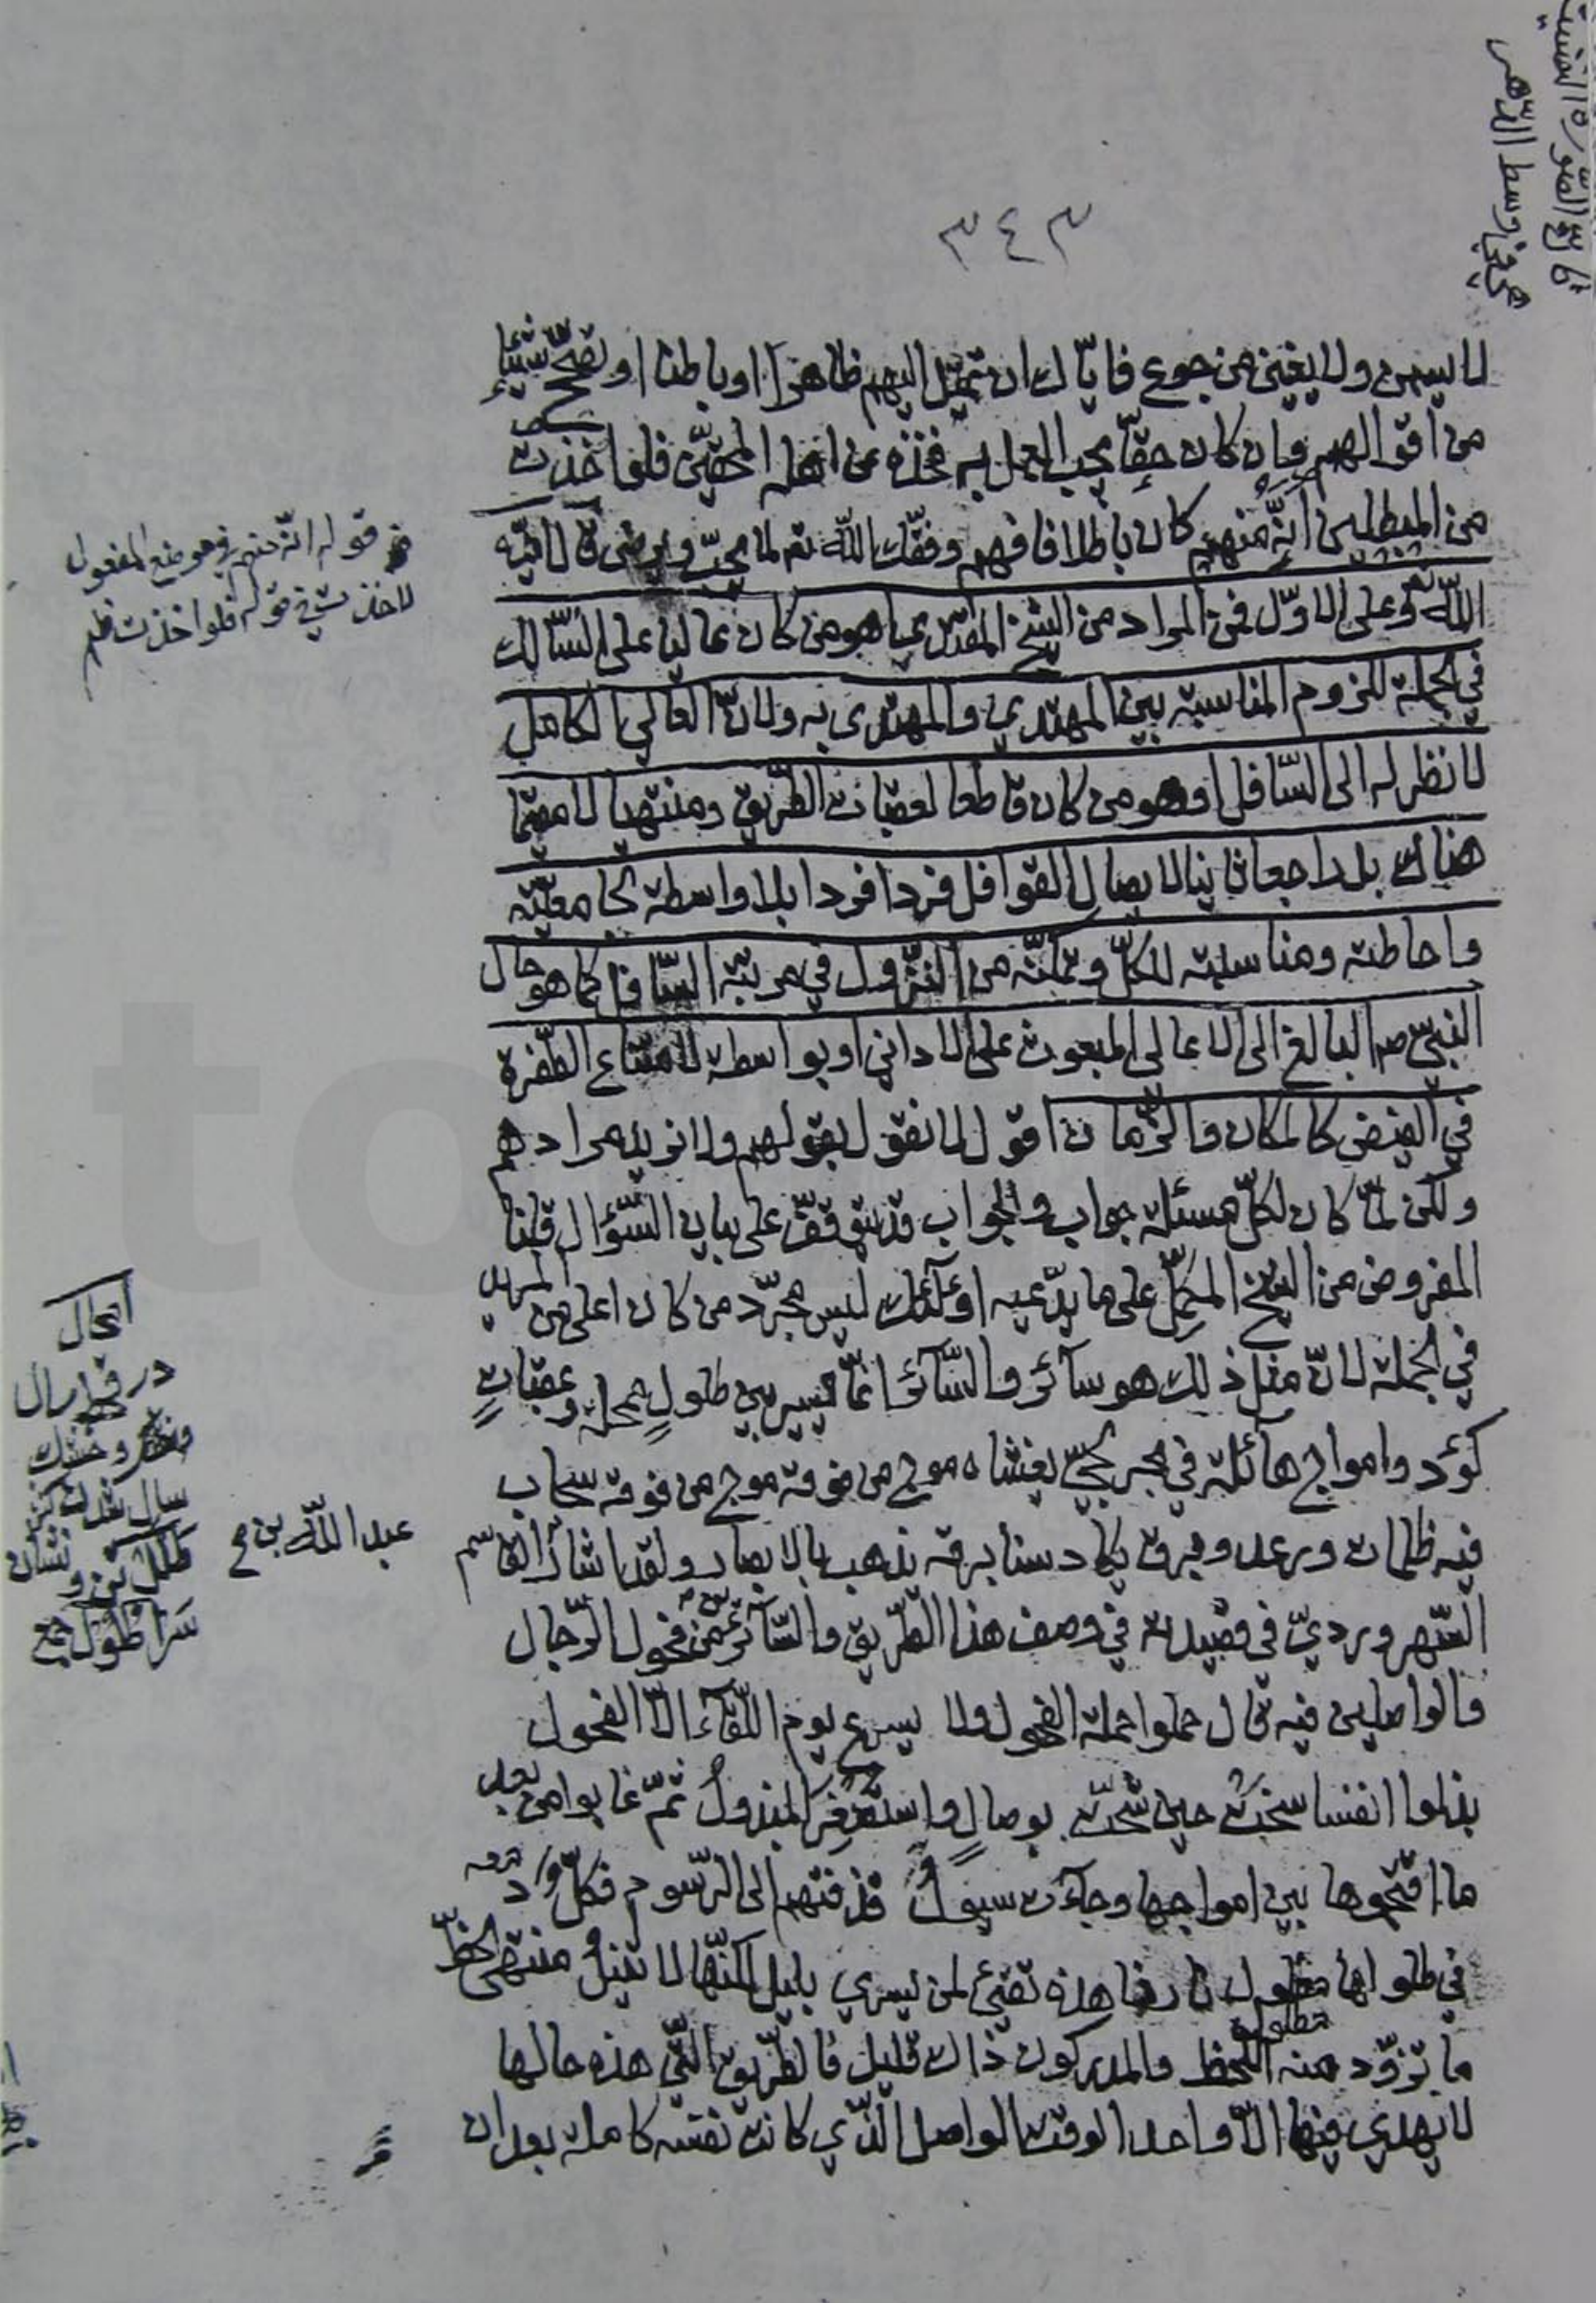 ٣٤٣
لا يسمن ولا يغني من جوع فاياك ان تميل اليهم ظاهرا او باطنا او تصحح شيئا
من اقوالهم وان كان حقا يجب العمل به فخذه عن اهله المحقين فلو اخذت
من المبطلين انه منهم كان باطلا فافهم وفقك الله تع لما يحب ويرضى قال ايده
الله تع وعلى الاول فمن المراد من الشيخ المقدس مما هو من كان عاليا على السالك
في الجملة للزوم المناسبة بين المهتدي والمهتدى به ولان العالي الكامل
لا نظر له الى السافل او هو من كان قاطعا لعقبات الطريق ومنتهيا لا مقيما
هناك بل راجعا ثانيا لايصال القوافل فردا فردا بلا واسطة لجامعيته
واحاطته ومناسبته للكل وتمكنه من النزول في مرتبة السافل كما هو حال
النبي ص البالغ الى الاعالي المبعوث على الاداني او بواسطة لامتناع الطفرة
في الفيض كالمكان والزمان اقول لا نقول بقولهم ولا نريد مرادهم
ولكن لما كان لكل مسئلة جواب والجواب قد يتوقف على بيان السؤال قلنا
المفروض من الشيخ المكمل على ما يدعيه اولئك ليس مجرد من كان اعلى من المريد
في الجملة لان مثل ذلك هو سائر والسائر انما يسير بين طلول ممحلة وعقبات
كؤد وامواج هائلة في بحر لجي يغشاه موج من فوقه موج من فوقه سحاب
فيه ظلمات ورعد وبرق يكاد سنا برقه يذهب بالابصار ولقد اشار القاسم
السهروردي في قصيدته في وصف هذا الطريق والسائرين من فحول الرجال
والواصلين فيه قال حملوا حملة الفحول ولا يسرع يوم اللقاء الا الفحول
بذلوا انفسا سخت حين شحت بوصال واستصغر المبذول ثم غابوا من بعد
ما اقتحموها بين امواجها وجاءت سيول قذفتهم الى الرسوم فكل دمه
في طلولها مطلول نارنا هذه تضئ لمن يسري بليل لكنها لا تنيل منتهى الحظ
ما تزود منه اللحظ والمدركون ذاك قليل فالطريق التي هذه حالها
لا يهدي فيها الا واحد الوقت الواصل الذي كانت نفسه كاملة بعد ان
قوله انه منهم في موضع المفعول
لاخذت في قوله فلو اخذت فلم
عبد الله بن
مطلول